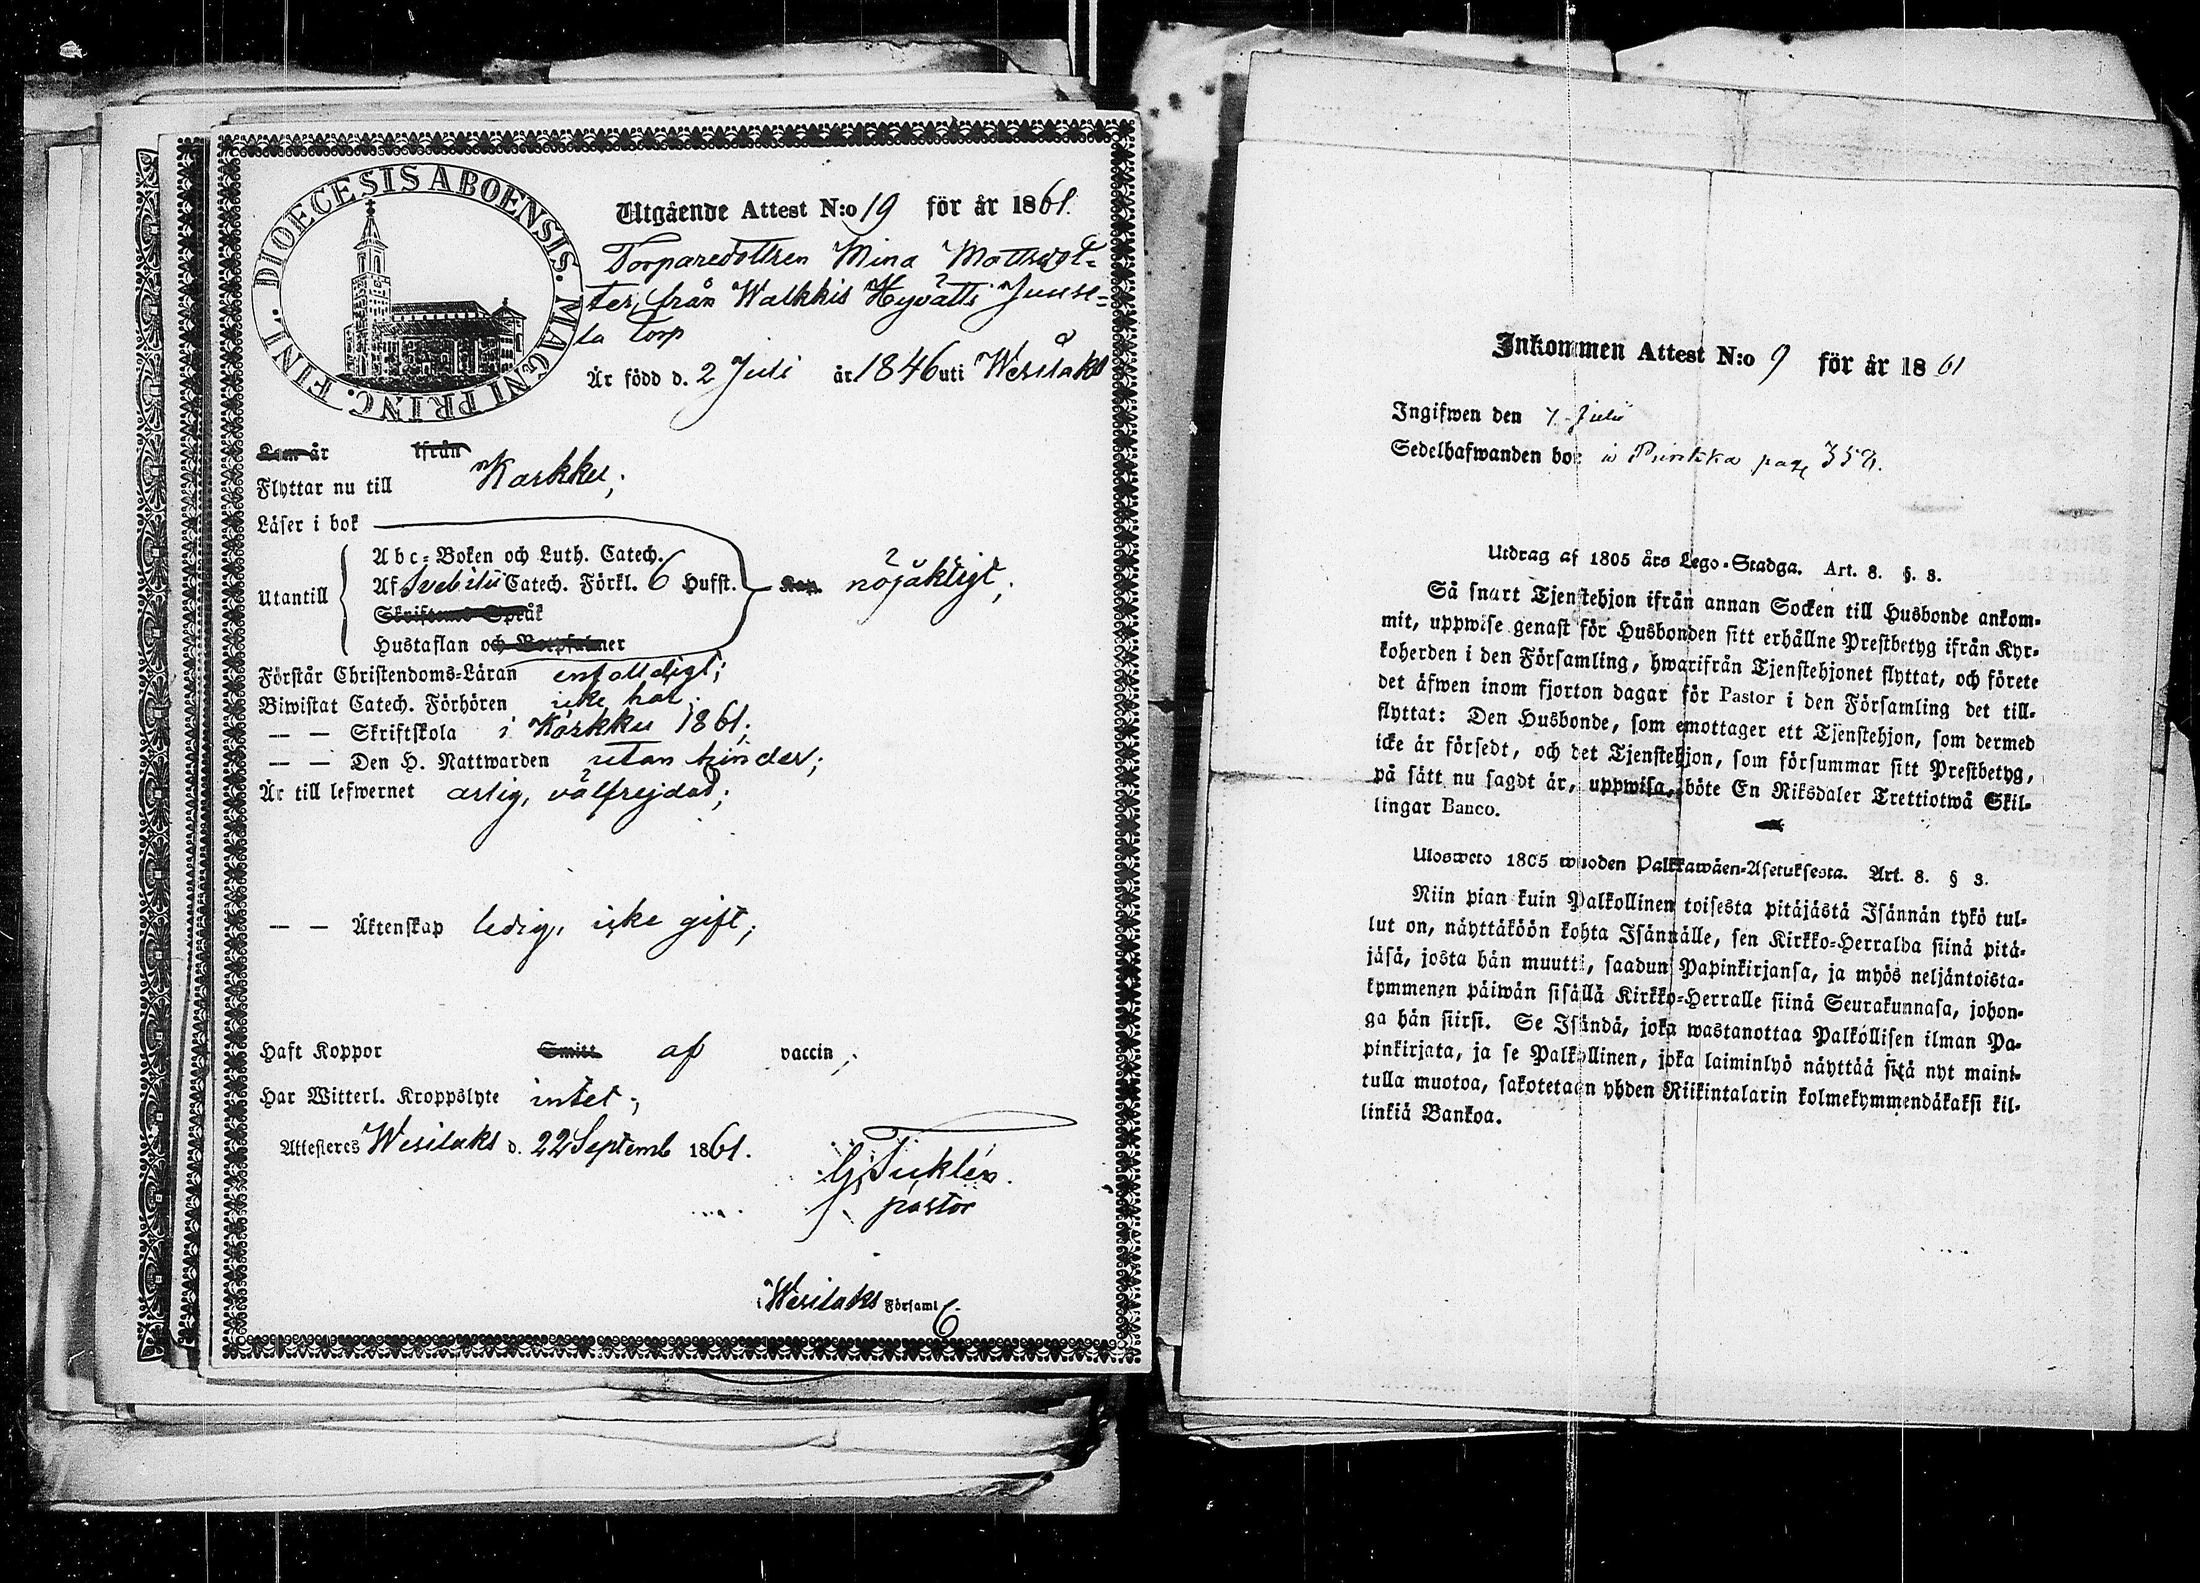 DIOECESIS ABOENSIS. MAGNI PRINC. FINL.
Utgående Attest N:o 19 för år 1861.
Torparedottren Mina Mattsdot=
ter, från Walkkis Hyvätti Juuse=
la Torp
Är född d. 2 Juli år 1846 uti Wesilaks
Som är ifrån
Flyttar nu till Karkku;
Läser i bok
Utantill
Abc=Boken och Luth. Catech.
Af Svebilii Catech. Förkl. 6 Hufst. Kap. nöjaktigt;
Skriftens Språk
Hustaflan och Botpsalmer
Förstår Christendoms=Läran enfalldigt;
Biwistat Catech. Förhören icke har.
— — Skriftskola i Karkku 1861;
— — Den H. Nattwarden utan hinder;
Är till lefwernet arlig, välfrejdad;
— — Äktenskap ledig, icke gift;
Haft Koppor Smitt af vaccin;
Har Witterl. Kroppslyte intet;
Attesteres Wesilaks d. 22 Septemb 1861.
pastor
i Wesilaks Församl
Inkommen Attest N:o 9 för år 1861
Ingifwen den 7 Julii
Sedelhafwanden bor i page 358.
Utdrag af 1805 års Lego-Stadga. Art. 8. §. 3.
Så snart Tjenstehjon ifrån annan Socken till Husbonde ankom-
mit, uppwise genast för Husbonden sitt erhållne Prestbetyg ifrån Kyr-
koherden i den Församling, hwarifrån Tjenstehjonet flyttat, och förete
det äfwen inom fjorton dagar för Pastor i den Församling det till-
flyttat: Den Husbonde, som emottager ett Tjenstehjon, som dermed
icke är försedt, och det Tjenstehjon, som försummar sitt Prestbetyg,
på sätt nu sagdt är, uppwisa, böte En Riksdaler Trettiotwå Skil-
lingar Banco.
Ulosweto 1805 wuoden Palkkawäen-Asetuksesta. Art. 8. § 3.
Niin pian kuin Palkollinen toisesta pitäjästä Isännän tykö tul-
lut on, näyttäköön kohta Isännälle, sen Kirkko=Herralda siinä pitä-
jäsä, josta hän muutti, saadun Papinkirjansa, ja myös neljäntoista-
kymmenen päiwän sisällä Kirkko=Herralle siinä Seurakunnasa, johon-
ga hän siirsi. Se Isändä, joka wastanottaa Palkollisen ilman Pa-
pinkirjata, ja se Palkollinen, joka laiminlyö näyttää sitä nyt maini-
tulla muotoa, sakotetaan yhden Riikintalarin kolmekymmendäkaksi kil-
linkiä Bankoa.